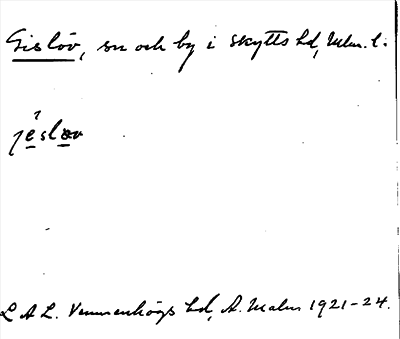 Gislöv, sn och by i Skytts hd, Mlm. l:
jèslæv
L A L. Vemmenhögs hd, A. Malm 1921-24.